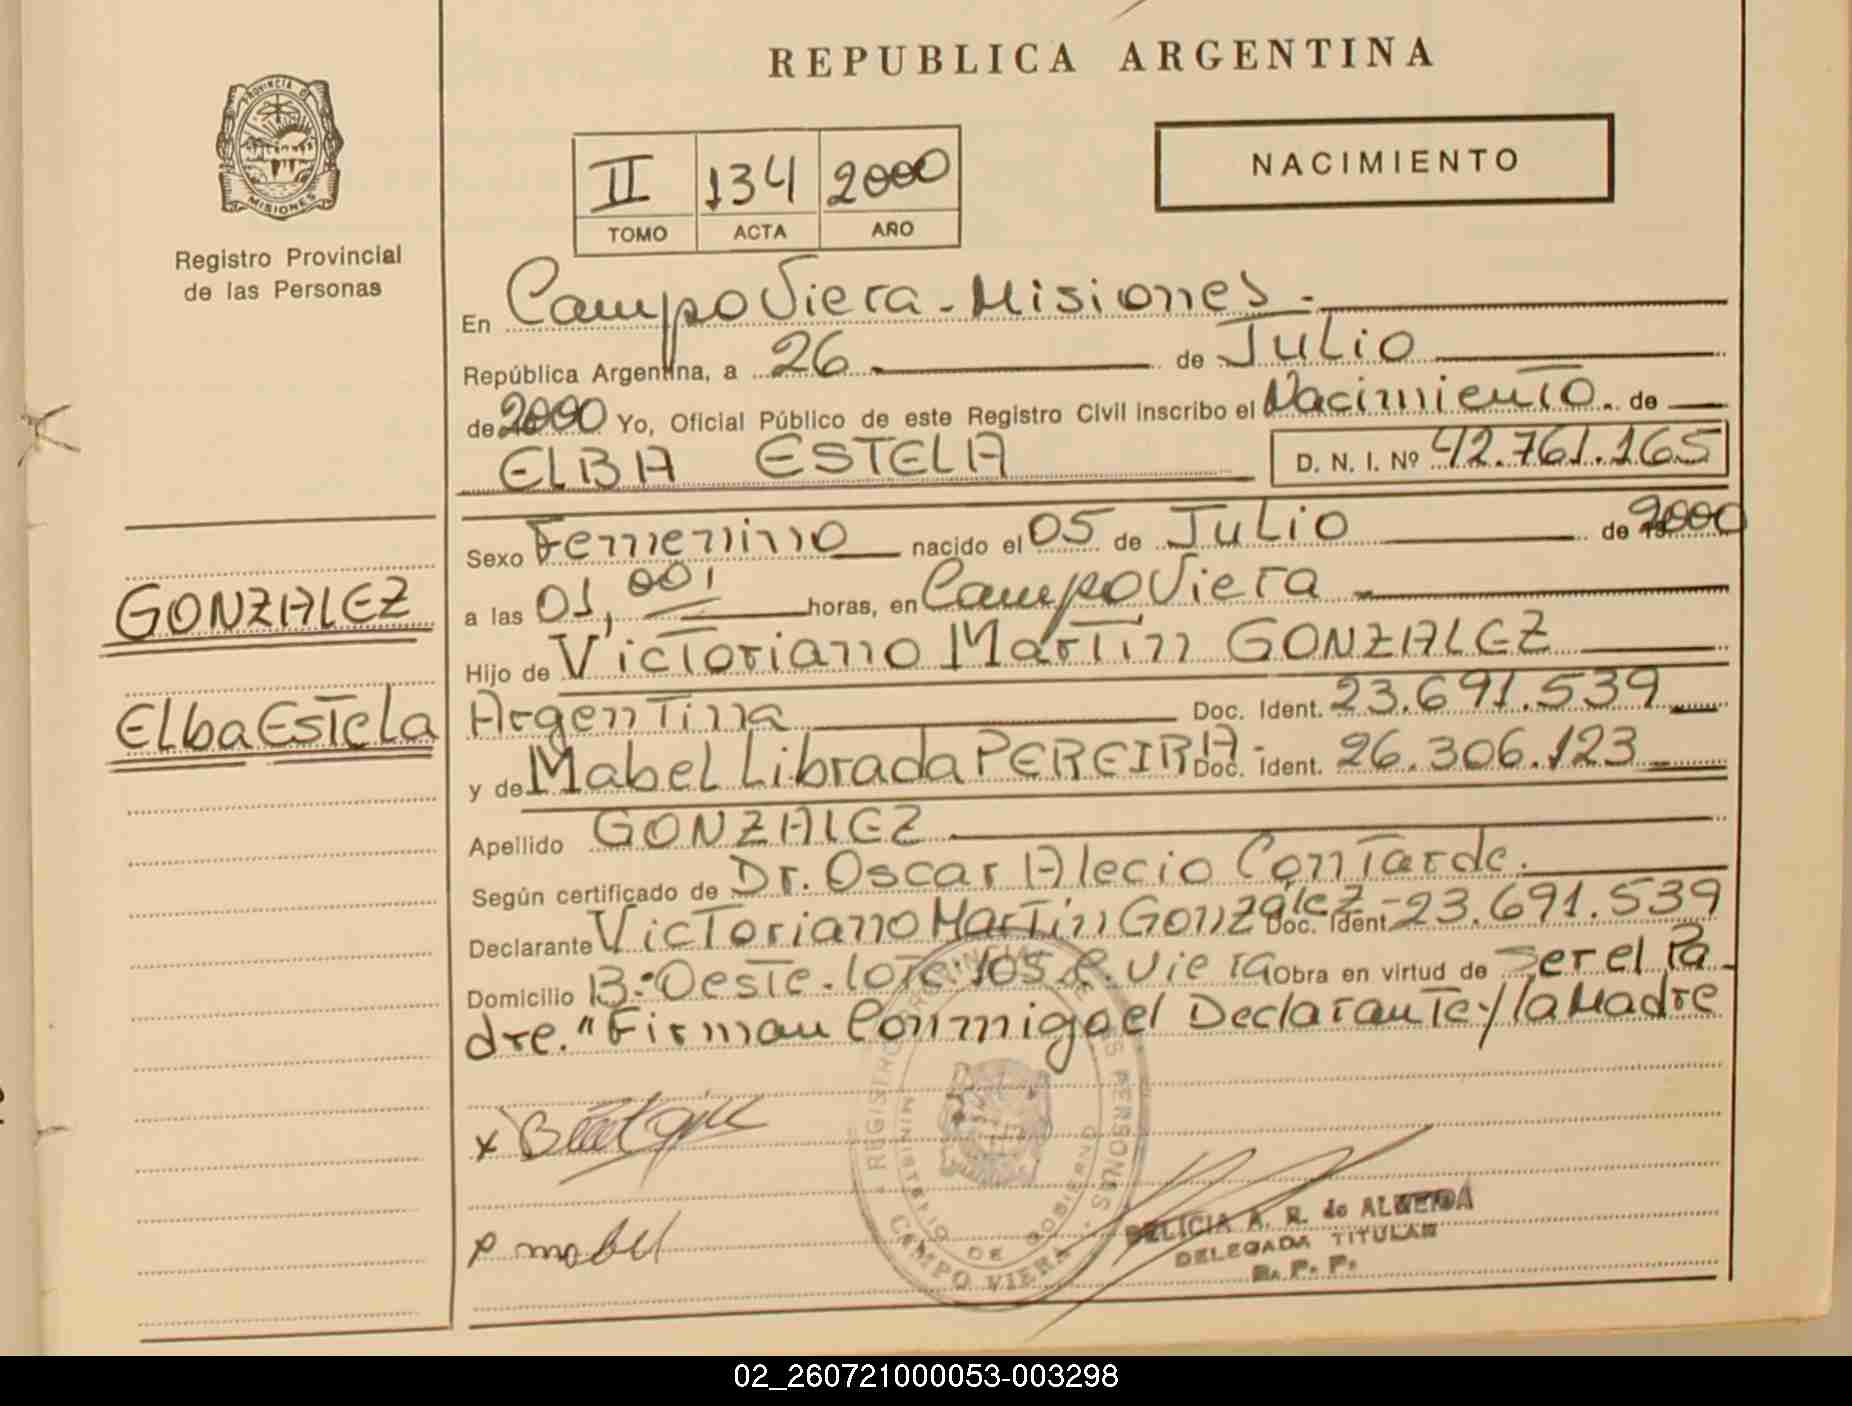 REPUBLICA ARGENTINA
PROVINCIA DE
MISIONES
Registro Provincial
de las Personas
II 134 2000
TOMO ACTA AÑO
NACIMIENTO
En Campo Viera - Misiones -
República Argentina, a 26 de Julio
de 2000 Yo, Oficial Público de este Registro Civil inscribo el Nacimiento. de
ELBA ESTELA D. N. I. Nº 42.761.165
Sexo Femenino nacido el 05 de Julio de 2000
a las 01,00 horas, en Campo Viera
Hijo de Victoriano Martin GONZALEZ
Argentina Doc. Ident. 23.691.539
y de Mabel Librada PEREIRA - Doc. Ident. 26.306.123
Apellido GONZALEZ
Según certificado de Dr. Oscar Alecio Contarde.
Declarante Victoriano Martin González - Doc. Ident. 23.691.539
Domicilio B:Oeste-lote 105 C. Viera Obra en virtud de Ser el Pa
dre. "Firman Conmigo el Declarante y la Madre
GONZALEZ
Elba Estela
x
x mabel
REGISTRO PROVINCIAL DE LAS PERSONAS
MINISTERIO DE GOBIERNO
CAMPO VIERA
FELICIA A. R. de ALMEIDA
DELEGADA TITULAR
R. P. P.
02_260721000053-003298